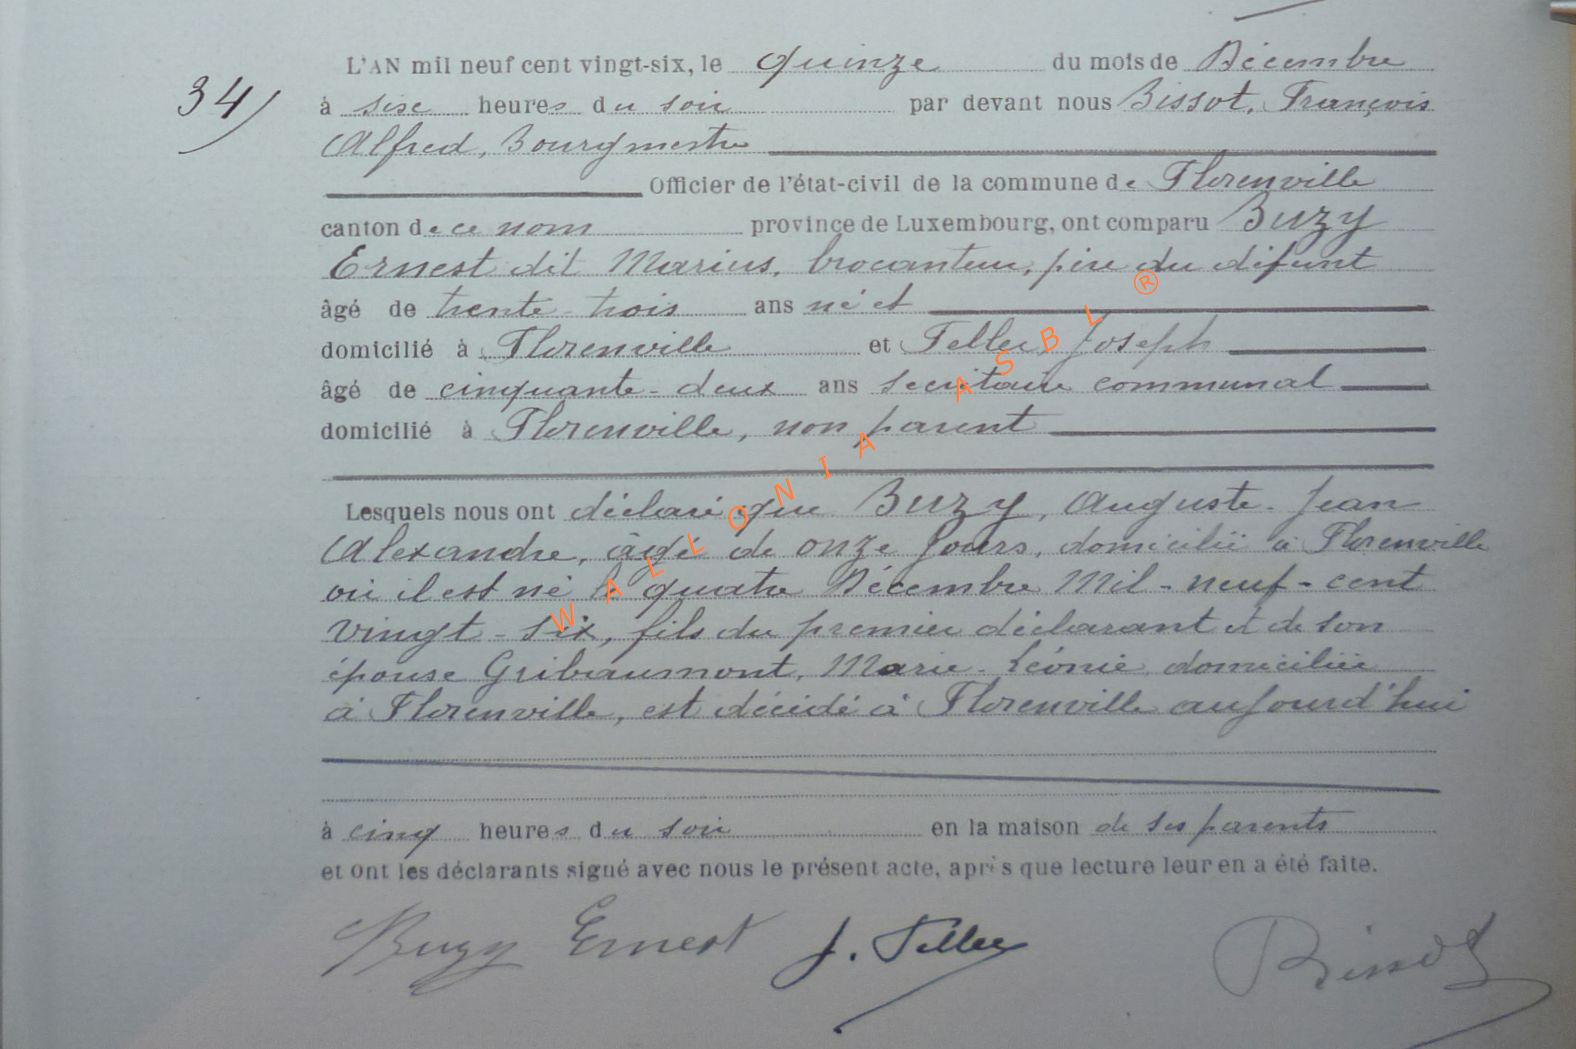 34/
L'AN mil neuf cent vingt-six, le quinze du mois de Décembre
à sixe heures du soir par devant nous Bissot, François
Alfred, Bourgmestre
Officier de l'état-civil de la commune de Florenville
canton de ce nom province de Luxembourg, ont comparu Buzy
Ernest dit Marius, brocanteur, père du défunt
âgé de trente-trois ans né et
domicilié à Florenville et Feller, Joseph
âgé de cinquante-deux ans secrétaire communal
domicilié à Florenville, non parent
Lesquels nous ont déclaré que Buzy, Auguste-Jean
Alexandre, âgé de onze jours, domicilié à Florenville
où il est né le quatre Décembre Mil-neuf-cent
vingt-six, fils du premier déclarant et de son
épouse Gribaumont, Marie-Léonie domiciliée
à Florenville, est décédé à Florenville aujourd'hui
à cinq heures du soir en la maison de ses parents
et ont les déclarants signé avec nous le présent acte, après que lecture leur en a été faite.
Buzy Ernest J. Feller Bissot
WALLONIA ASBL ®